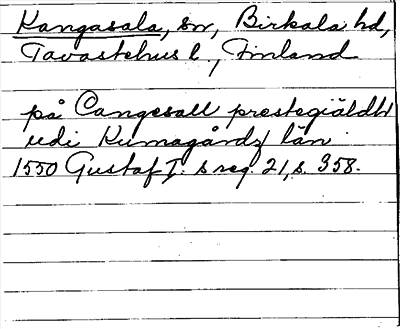 Kangasala, sn, Birkala hd,
Tavastehus l., Finland
på Cangesall prestegiäldh
udi Kumagårdz län
1550 Gustaf I:s reg. 21, s. 358.